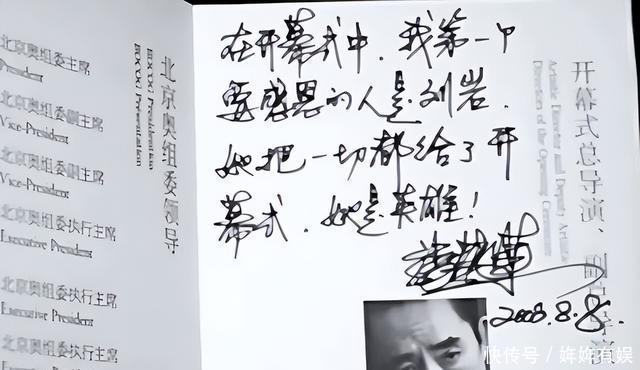 北京奥组委主席
President
北京奥组委副主席
Vice-President
北京奥组委副主席
Vice-President
北京奥组委执行主席
Executive President
北京奥组委执行主席
Executive President
北京奥组委执行主席
Executive President
北京奥组委领导
在开幕式中,我第一个
要感恩的人是刘岩.
她把一切都给了开
幕式,她是英雄!
2008.8.8.
开幕式总导演、
Artistic Director and Deputy Artistic
快传号 / 有娱